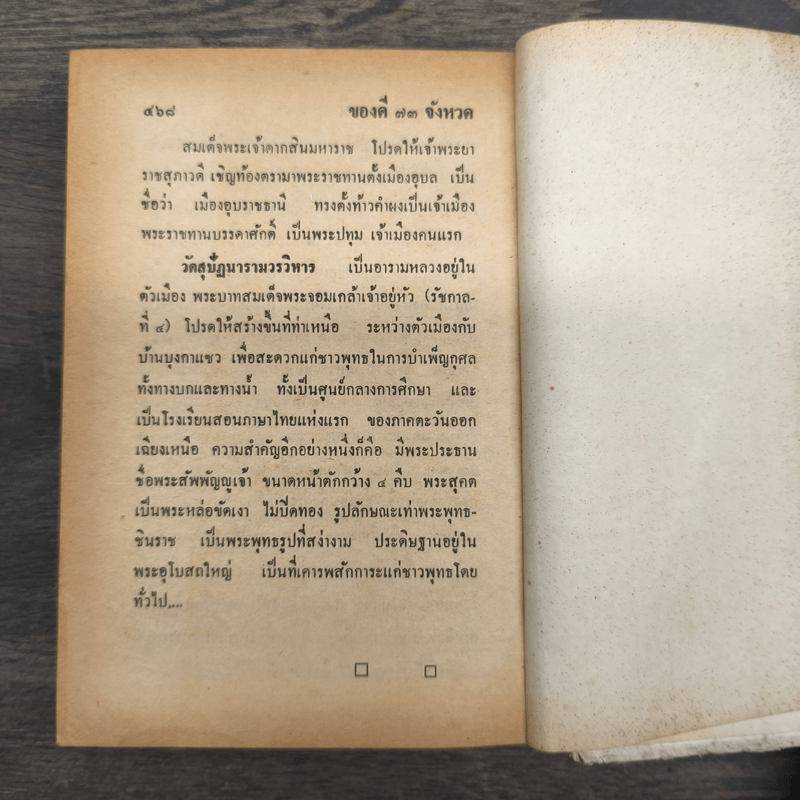 ๔๖๘ ของดี ๗๓ จังหวด
สมเด็จพระเจ้าตากสินมหาราช โปรดให้เจ้าพระยา
ราชสุภาวดี เชิญท้องตรามาพระราชทานตั้งเมืองอุบล เป็น
ชื่อว่า เมืองอุบราชธานี ทรงตั้งท้าวคำผงเป็นเจ้าเมือง
พระราชทานบรรดาศักดิ์ เป็นพระปทุม เจ้าเมืองคนแรก
วัดสุปัฏนารามวรวิหาร เป็นอารามหลวงอยู่ใน
ตัวเมือง พระบาทสมเด็จพระจอมเกล้าเจ้าอยู่หัว (รัชกาล-
ที่ ๔) โปรดให้สร้างขึ้นที่ท่าเหนือ ระหว่างตัวเมืองกับ
บ้านบุงกาแซว เพื่อสะดวกแก่ชาวพุทธในการบำเพ็ญกุศล
ทั้งทางบกและทางน้ำ ทั้งเป็นศูนย์กลางการศึกษา และ
เป็นโรงเรียนสอนภาษาไทยแห่งแรก ของภาคตะวันออก
เฉียงเหนือ ความสำคัญอีกอย่างหนึ่งก็คือ มีพระประธาน
ชื่อพระสัพพัญญูเจ้า ขนาดหน้าตักกว้าง ๔ คืบ พระสุคต
เป็นพระหล่อขัดเงา ไม่ปิดทอง รูปลักษณะเท่าพระพุทธ-
ชินราช เป็นพระพุทธรูปที่สง่างาม ประดิษฐานอยู่ใน
พระอุโบสถใหญ่ เป็นที่เคารพสักการะแก่ชาวพุทธโดย
ทั่วไป,...